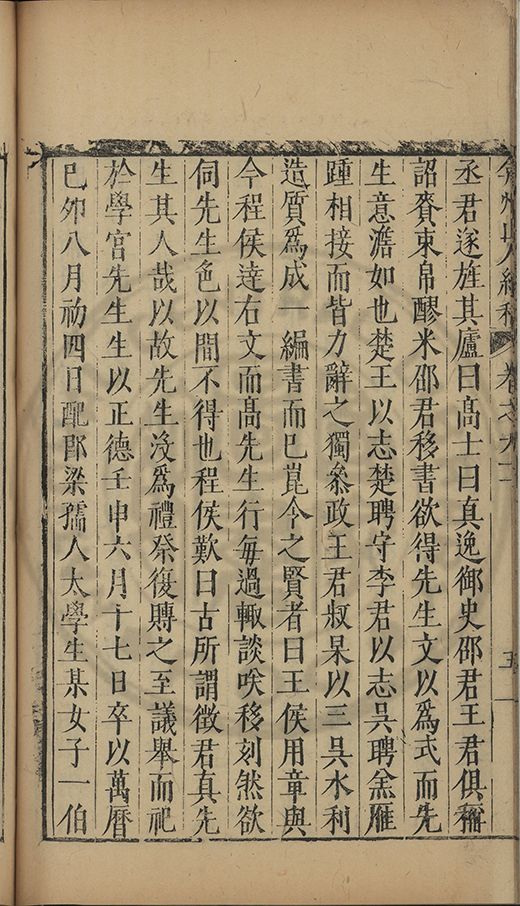 弇州山人續稿 卷之九十 五
丞君遂旌其廬曰髙士曰真逸御史邵君王君俱稱
詔賚束帛醪米邵君移書欲得先生文以爲式而先
生意澹如也楚王以志楚聘守李君以志吳聘羔雁
踵相接而皆力辭之獨叅政王君叔杲以三吳水利
造質爲成一編書而已崑今之賢者曰王侯用章與
今程侯達右文而髙先生行每過輙談咲移刻然欲
伺先生色以間不得也程侯歎曰古所謂徵君真先
生其人哉以故先生沒爲禮祭復賻之至議舉而祀
於學官先生生以正德壬申六月十七日卒以萬曆
己卯八月初四日配即梁孺人太學生某女子一伯